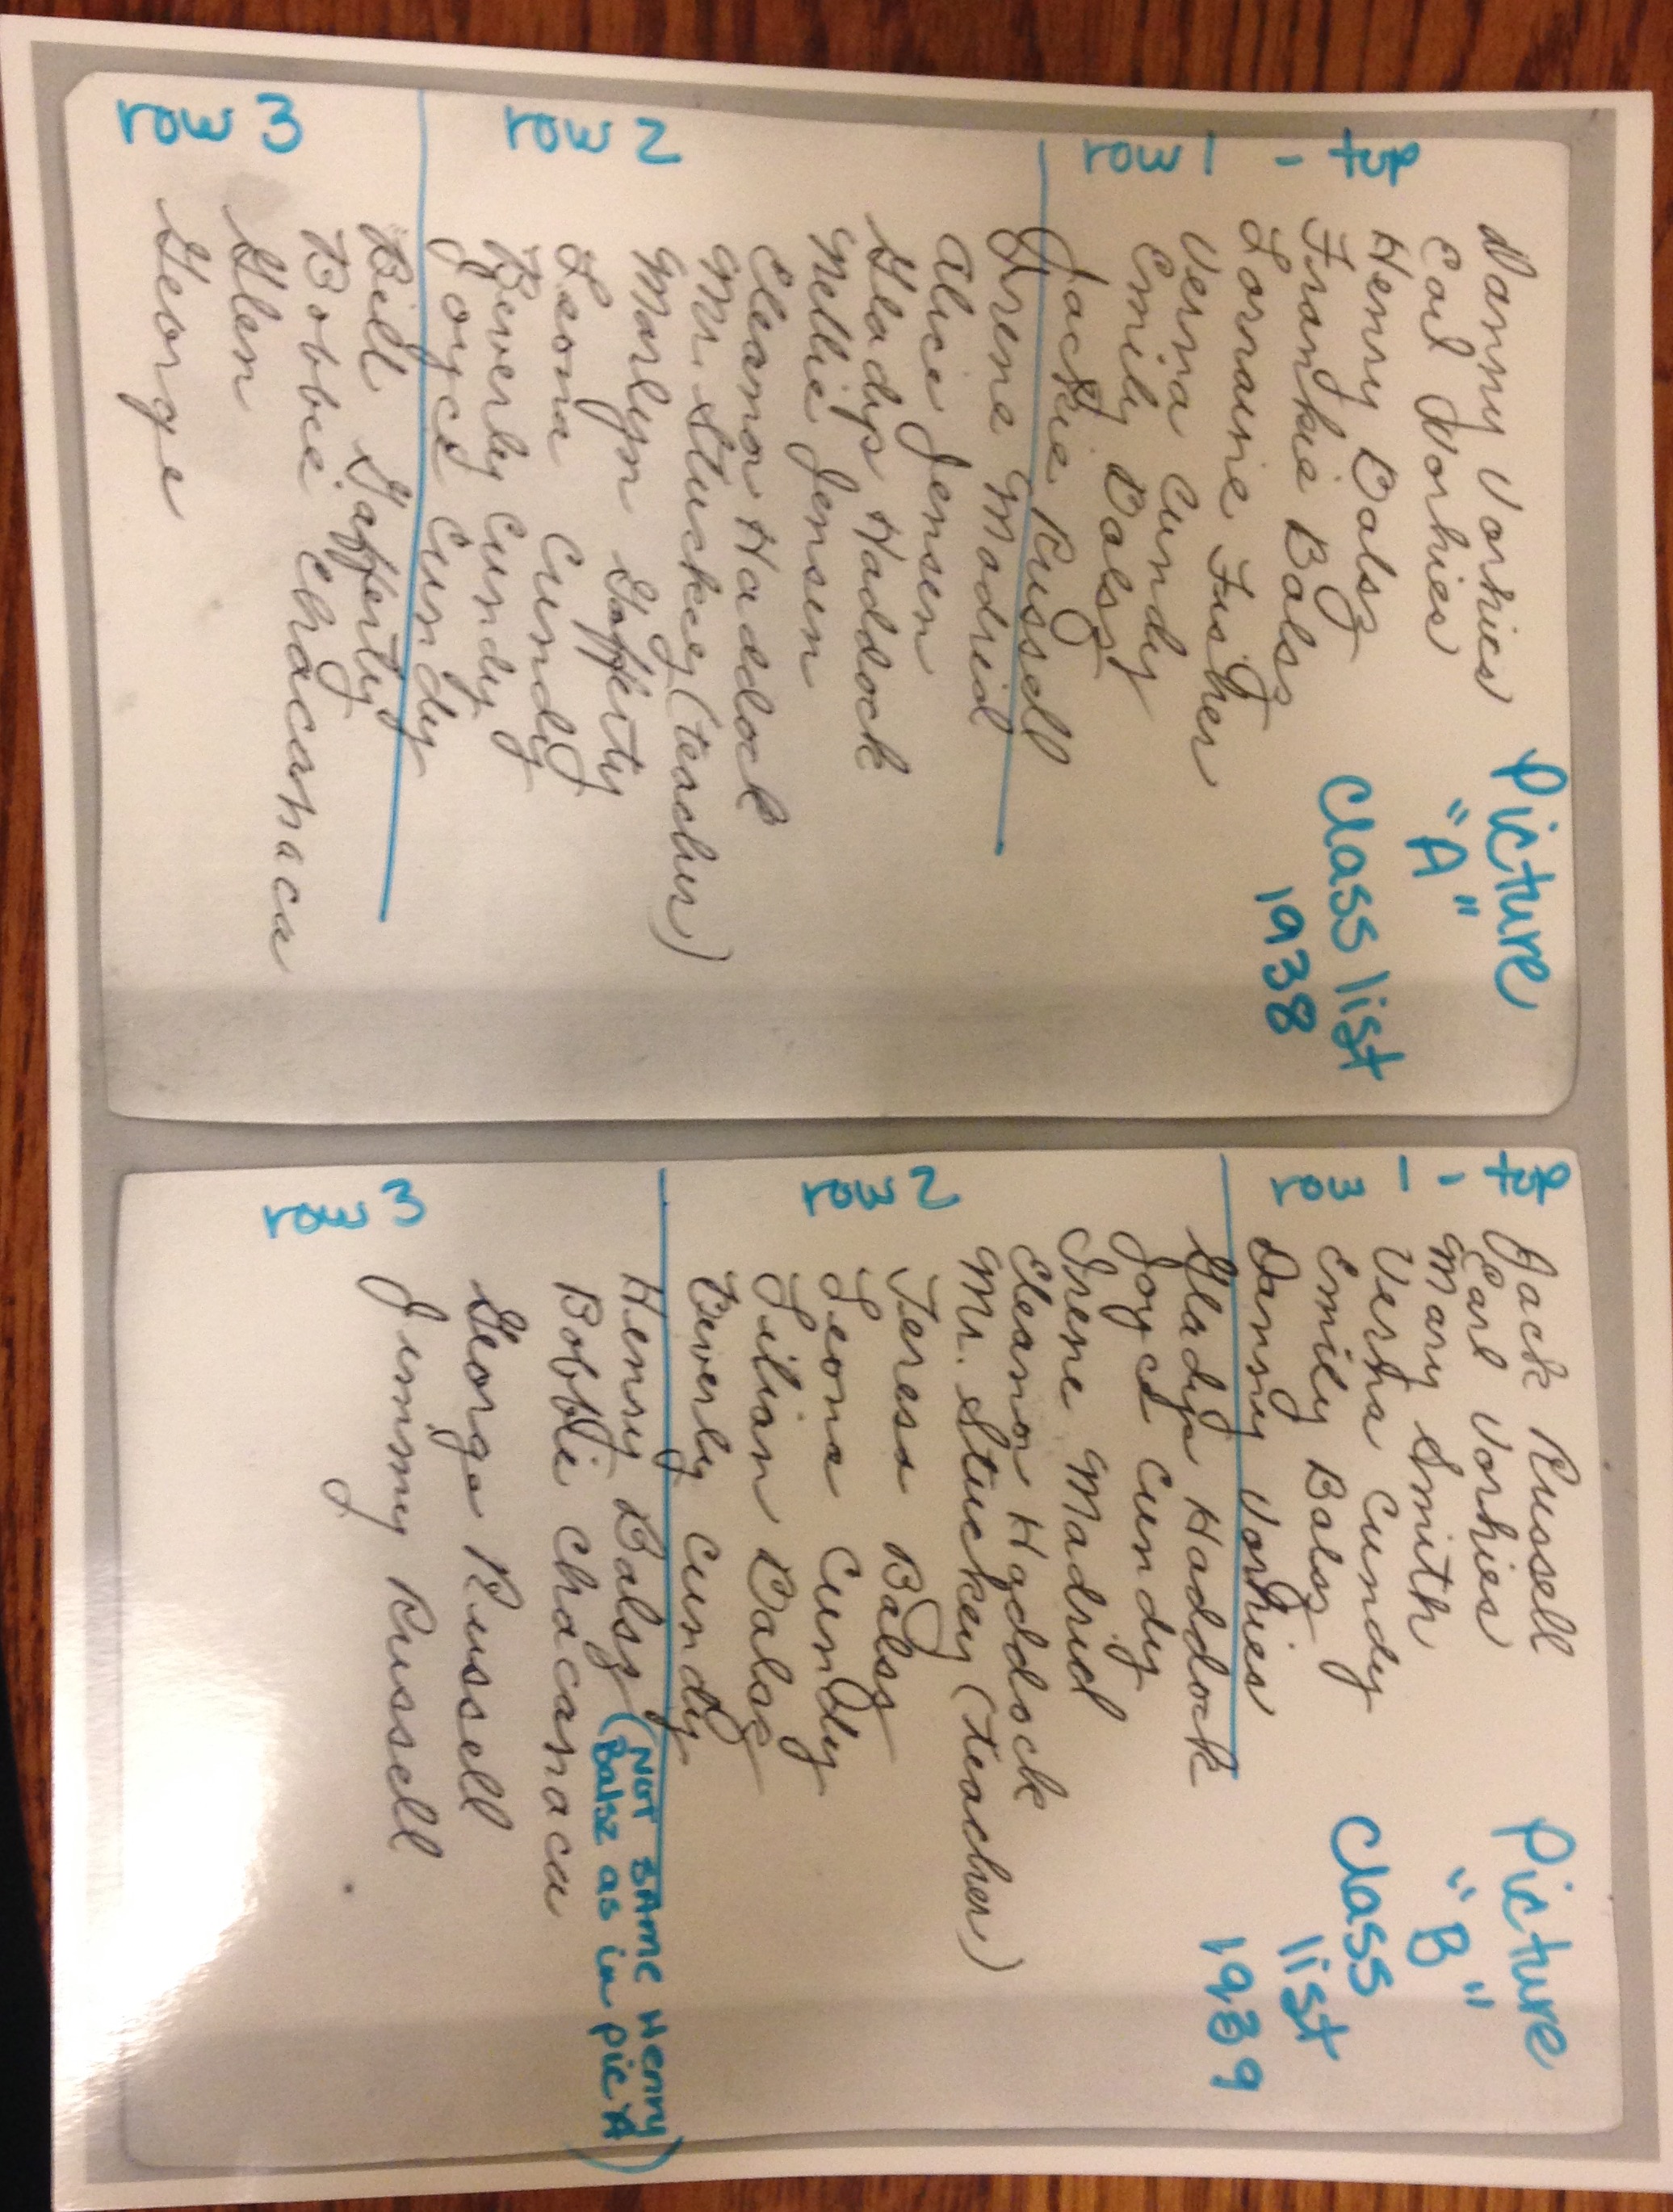 Picture
"A"
Class list
1938
frt - row 1
Danny Vorhies
Earl Vorhies
Henry Balsz
Frankie Balsz
Lorraine Fisher
Verna Cundy
Emily Balsz
Jackie Russell
row 2
Irene Madrid
Alice Jensen
Gladys Haddock
Nellie Jensen
Eleanor Haddock
Mr. Stuckey (teacher)
Marlyn Gafferty
Leona Cundy
Beverly Cundy
Joyce Cundy
row 3
Bill Gafferty
Bobbie Chacanaca
Glen
George
Picture
"B"
Class
list
1939
frt - row 1
Jack Russell
Earl Vorhies
Mary Smith
Verna Cundy
Emily Balsz
Danny Vorhies
row 2
Gladys Haddock
Joyce Cundy
Irene Madrid
Eleanor Haddock
Mr. Stuckey (teacher)
Teresa Balsz
Leona Cundy
Lilian Balsz
Beverly Cundy
row 3
Henry Balsz (NOT SAME Henry
Balsz as in pic A)
Bobbie Chacanaca
George Russell
Jimmy Russell